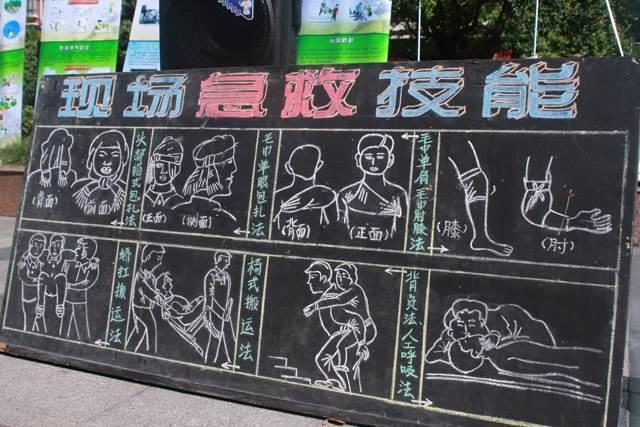 现场急救技能
头部帽式包扎法
(背面)
(前面)
毛巾单眼包扎法
(正面)
(侧面)
毛巾单肩、毛巾肘膝法
(背面)
(正面)
(膝)
(肘)
轿扛搬运法
椅式搬运法
背负法、人工呼吸法